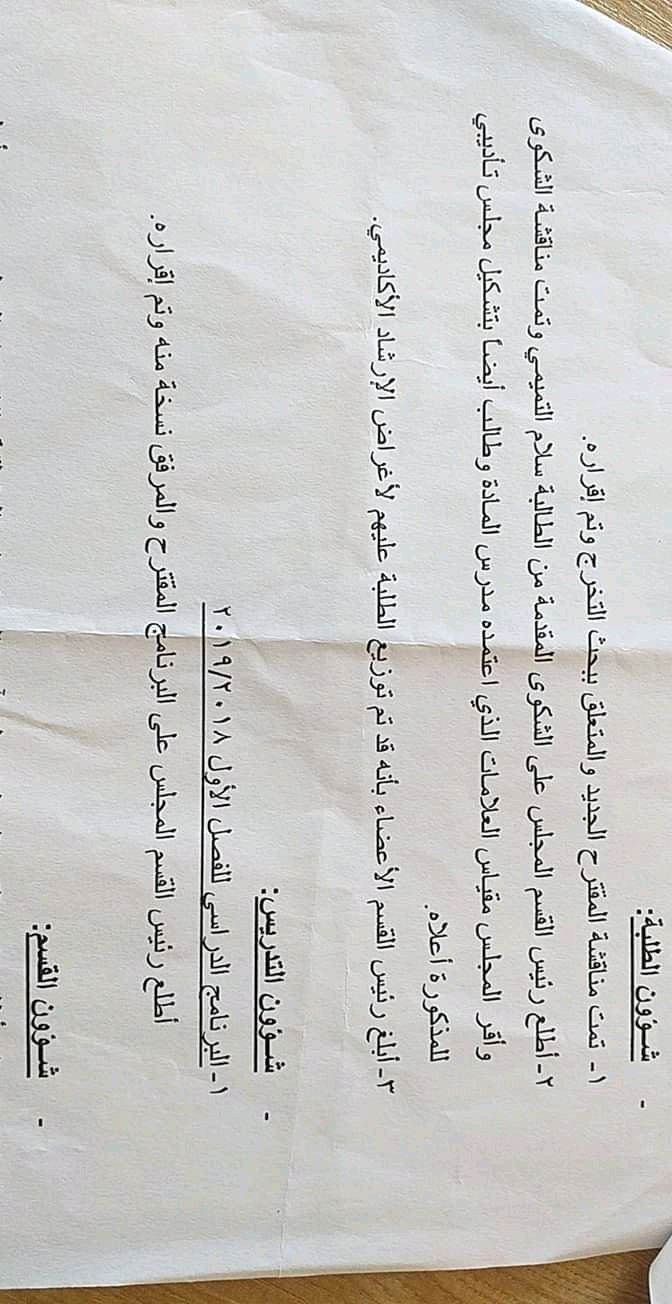 - شؤون الطلبة:
١- تمت مناقشة المقترح الجديد والمتعلق ببحث التخرج وتم إقراره.
٢- أطلع رئيس القسم المجلس على الشكوى المقدمة من الطالبة سلام التميمي وتمت مناقشة الشكوى
وأقر المجلس مقياس العلامات الذي اعتمده مدرس المادة وطالب أيضاً بتشكيل مجلس تأديبي
للمذكورة أعلاه.
٣- أبلغ رئيس القسم الأعضاء بأنه قد تم توزيع الطلبة عليهم لأغراض الإرشاد الأكاديمي.
- شؤون التدريس:
١- البرنامج الدراسي للفصل الأول ٢٠١٩/٢٠١٨
أطلع رئيس القسم المجلس على البرنامج المقترح والمرفق نسخة منه وتم إقراره.
- شؤون القسم: